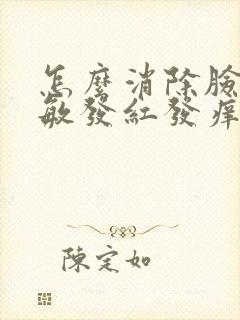 怎麼消除臉
敏發紅發癢
陳定如